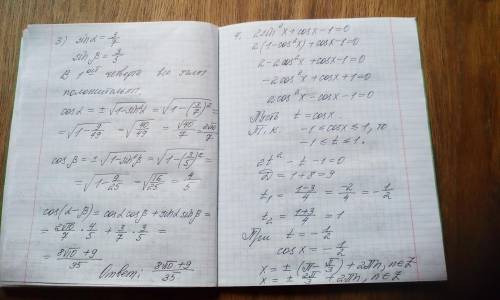 3) sin α = 3/7
sin β = 3/5
В 1 четверти все
положительны.
cos α = ± √1-sin²α = √1-(3/7)² =
= √1-9/49 = √40/49 = √40/7 = 2√10/7
cos β = ± √1-sin²β = √1-(3/5)² =
= √1-9/25 = √16/25 = 4/5
cos(α-β) = cos α cos β + sin α sin β =
= 2√10/7 · 4/5 + 3/7 · 3/5 =
= 8√10+9/35
Ответ: 8√10+9/35
2sin²x + cosx - 1 = 0
2(1-cos²x) + cosx - 1 = 0
2-2cos²x + cosx - 1 = 0
-2cos²x + cosx + 1 = 0
2cos²x - cosx - 1 = 0
Пусть t = cosx
Т.к. -1 ≤ cosx ≤ 1, то
-1 ≤ t ≤ 1.
2t² - t - 1 = 0
D = 1+8 = 9
t₁ = 1-3/4 = -2/4 = -1/2
t₂ = 1+3/4 = 1
При t = -1/2
cosx = -1/2
x = ± (π - π/3) + 2πn, n∈Z
x = ± 2π/3 + 2πn, n∈Z